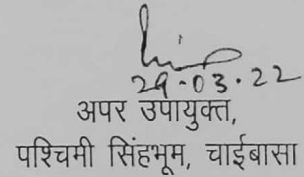 29.03.22
अपर उपायुक्त,
पश्चिमी सिंहभूम, चाईबासा